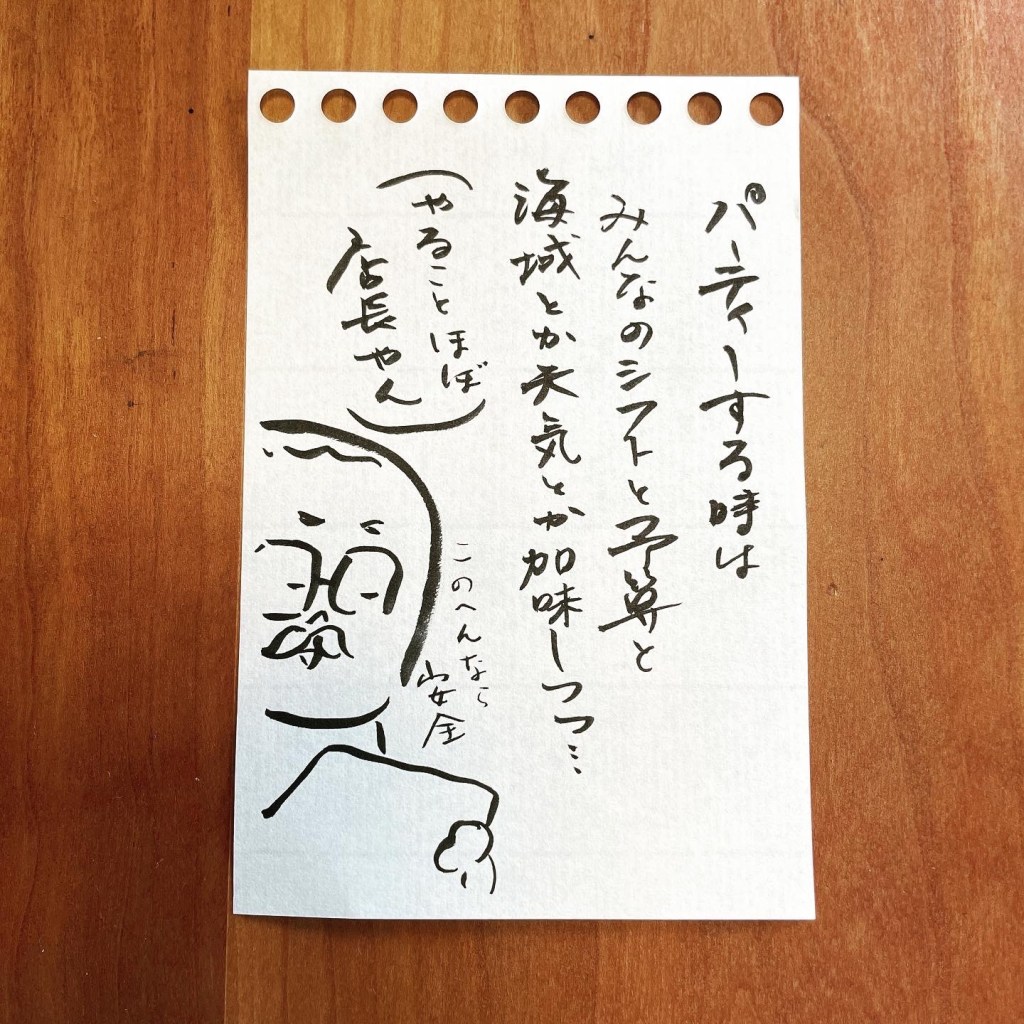 パーティーする時は
みんなのシフトと予算と
海域とか天気とか加味しつつ…
(やることほぼ
店長やん)
このへんなら
安全